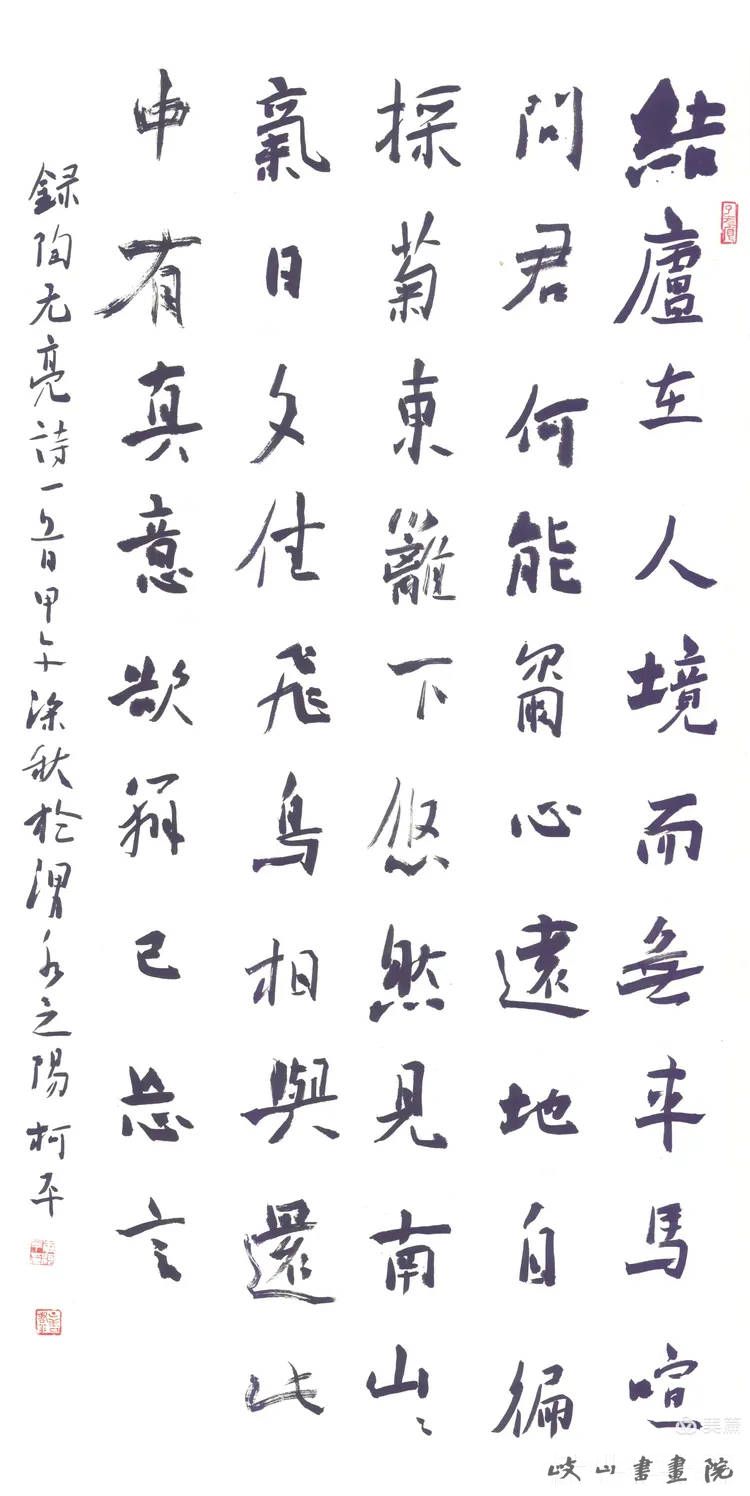 結廬在人境而無車馬喧
問君何能爾心遠地自偏
採菊東籬下悠然見南山〻
氣日夕佳飛鳥相與還此
中有真意欲辨已忘言
録陶元亮詩一首甲午深秋於渭水之陽柯平
美篇
岐山書畫院